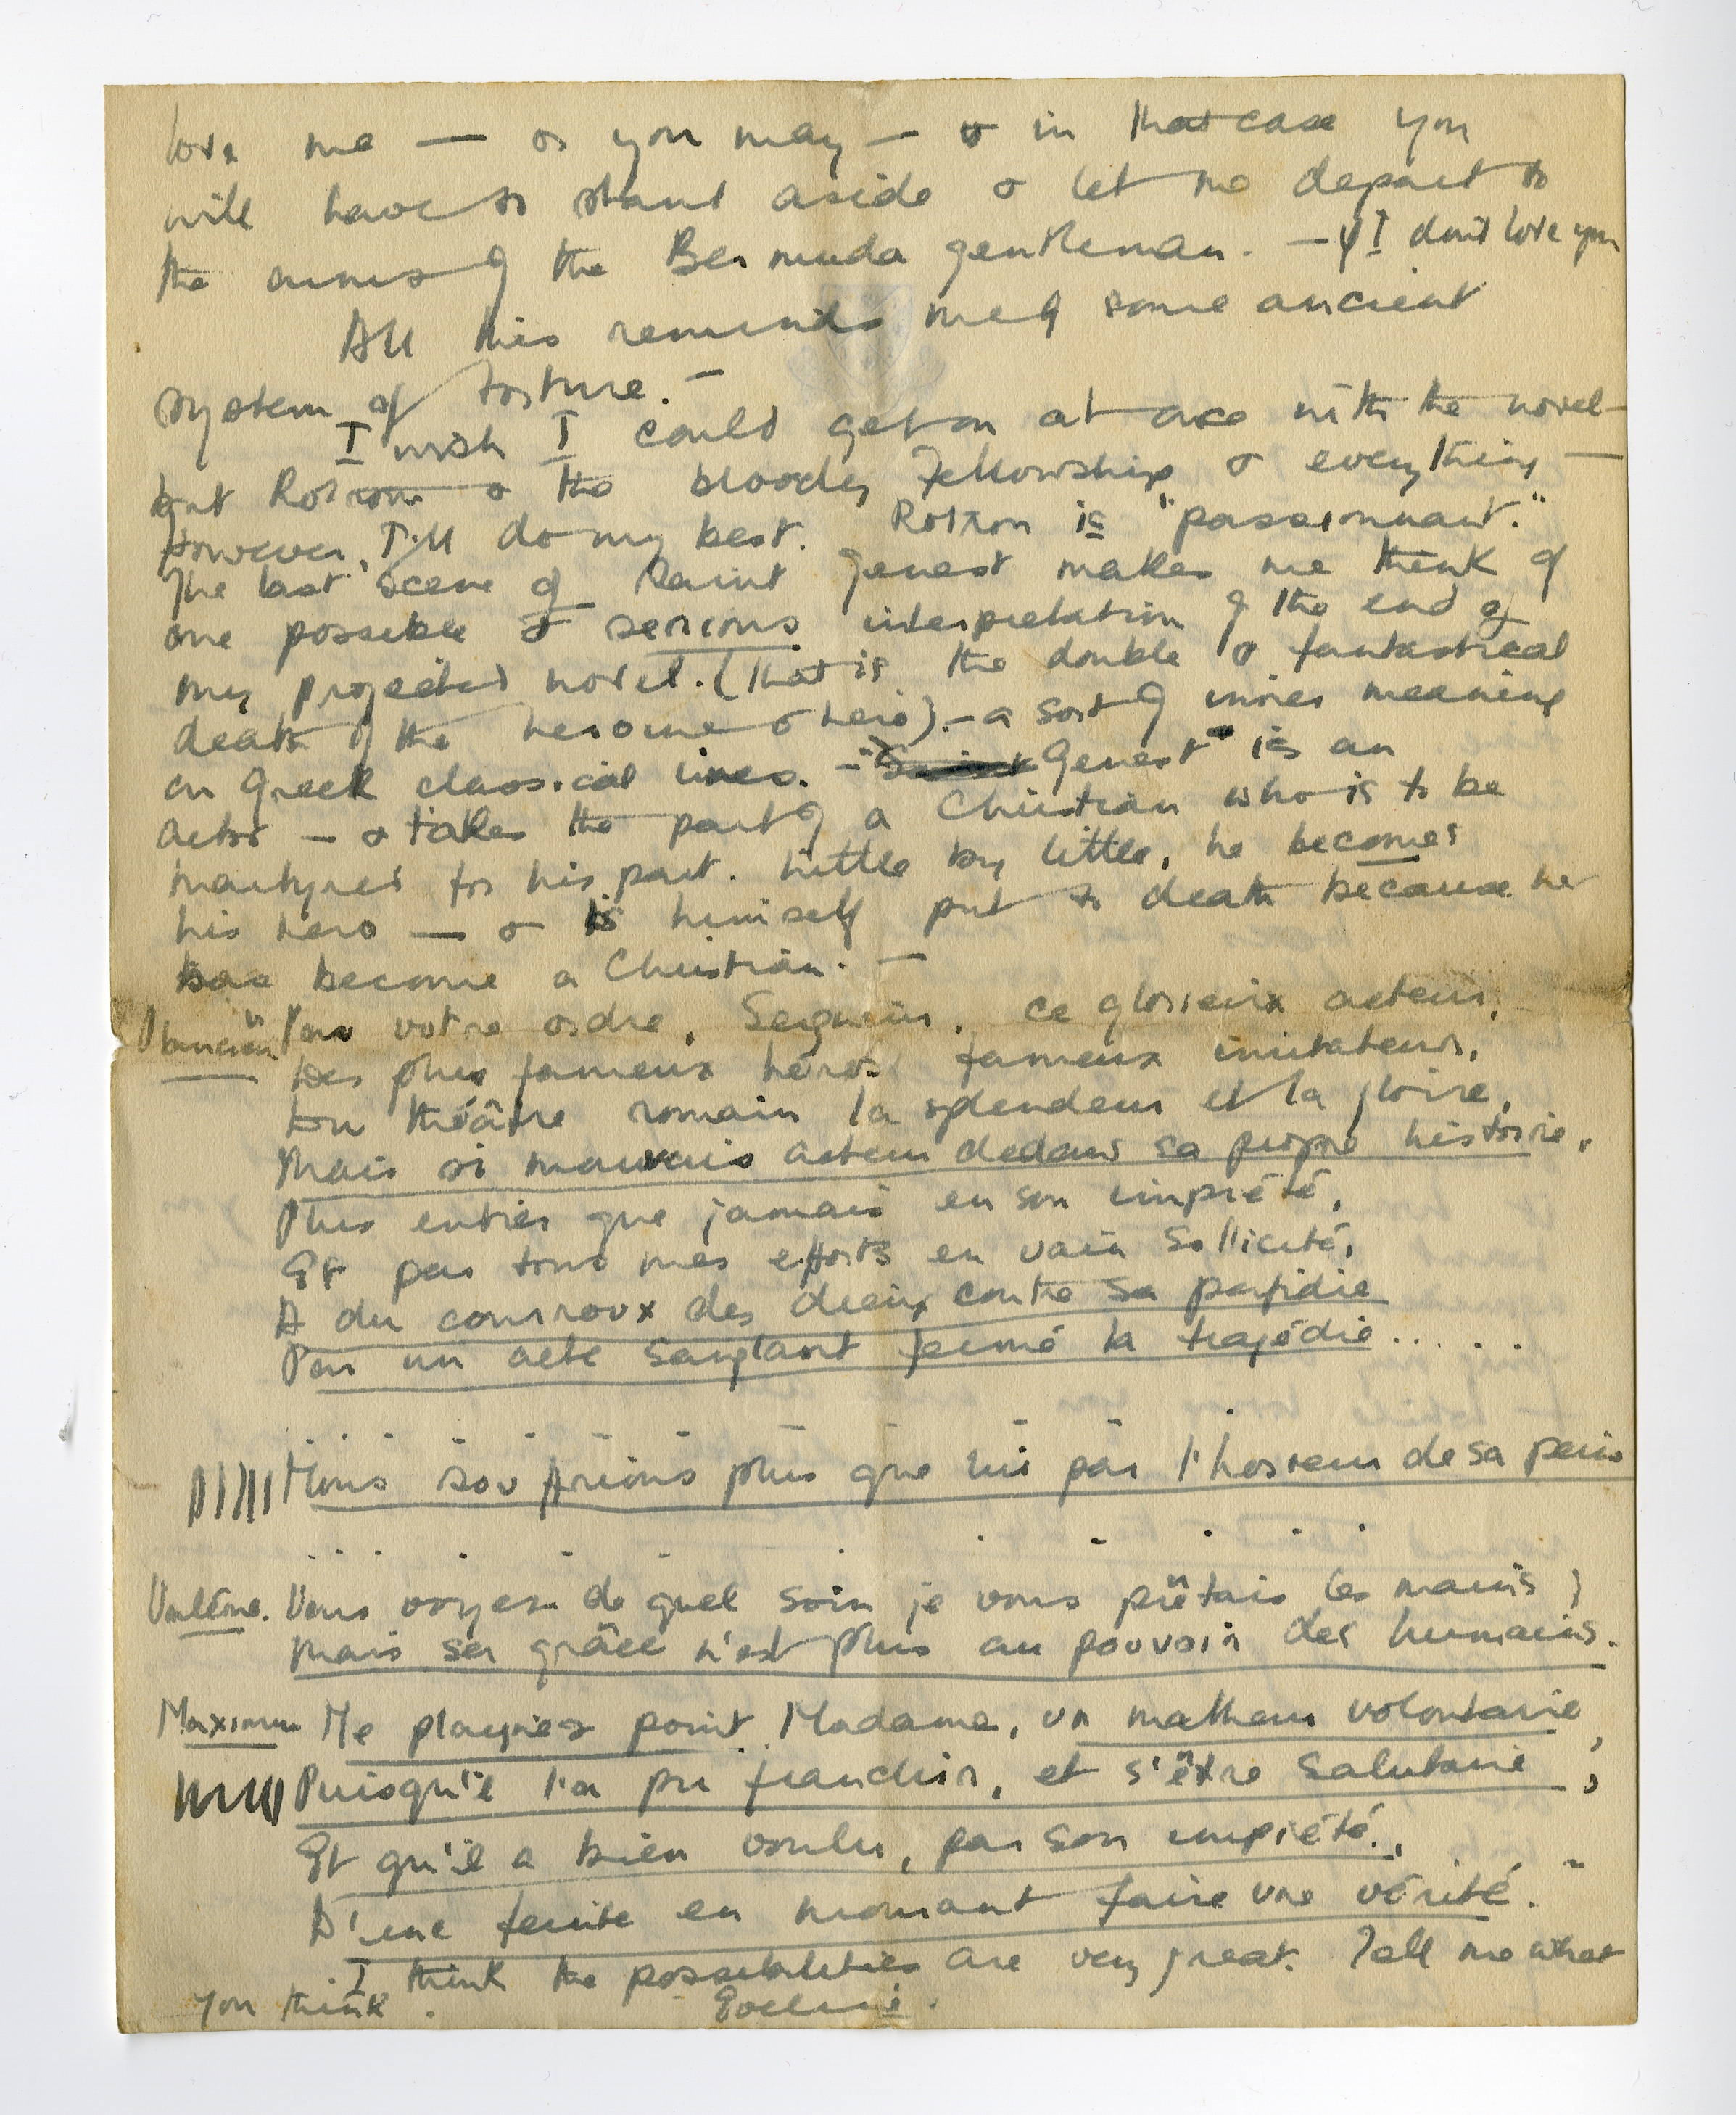 love me — or you may — & in that case you
will have to stand aside & let me depart to
the arms of the Bermuda gentleman. — if I don't love you
All this reminds me of some ancient
system of torture. —
I wish I could get on at once with the novel —
but Rotrou & the bloody Fellowship & everything —
However, I'll do my best. Rotrou is "passionnant."
The last scene of Saint Genest makes me think of
one possible & serious interpretation of the end of
my projected novel. (that is the double & fantastical
death of the heroine & hero). — a sort of inner meaning
on Greek classical lines. — "Genest" is an
actor — & takes the part of a Christian who is to be
martyred for his part. Little by little, he becomes
his hero — & is himself put to death because he
has become a Christian. —
Plancien "Par votre ordre, Seigneur, ce glorieux acteur,
Des plus fameux héros fameux imitateur,
Du théâtre romain la splendeur et la gloire,
Mais si mauvais acteur dedans sa propre histoire,
Plus entier que jamais en son impiété,
Et par tous mes efforts en vain sollicité,
A du courroux des dieux contre sa perfidie
Par un acte sanglant fermé la tragédie.....
Nous souffrions plus que lui par l'horreur de sa peine
Valérie. Vous voyez de quel soin je vous prêtais les mains;
Mais sa grâce n'est plus au pouvoir des humains.
Maximin Ne plaignez point, Madame, un malheur volontaire,
Puisqu'il l'a pu franchir, et s'être salutaire;
Et qu'il a bien voulu, par son impiété,
D'une feinte en mourant faire une vérité."
I think the possibilities are very great. Tell me what
you think. Eveline.